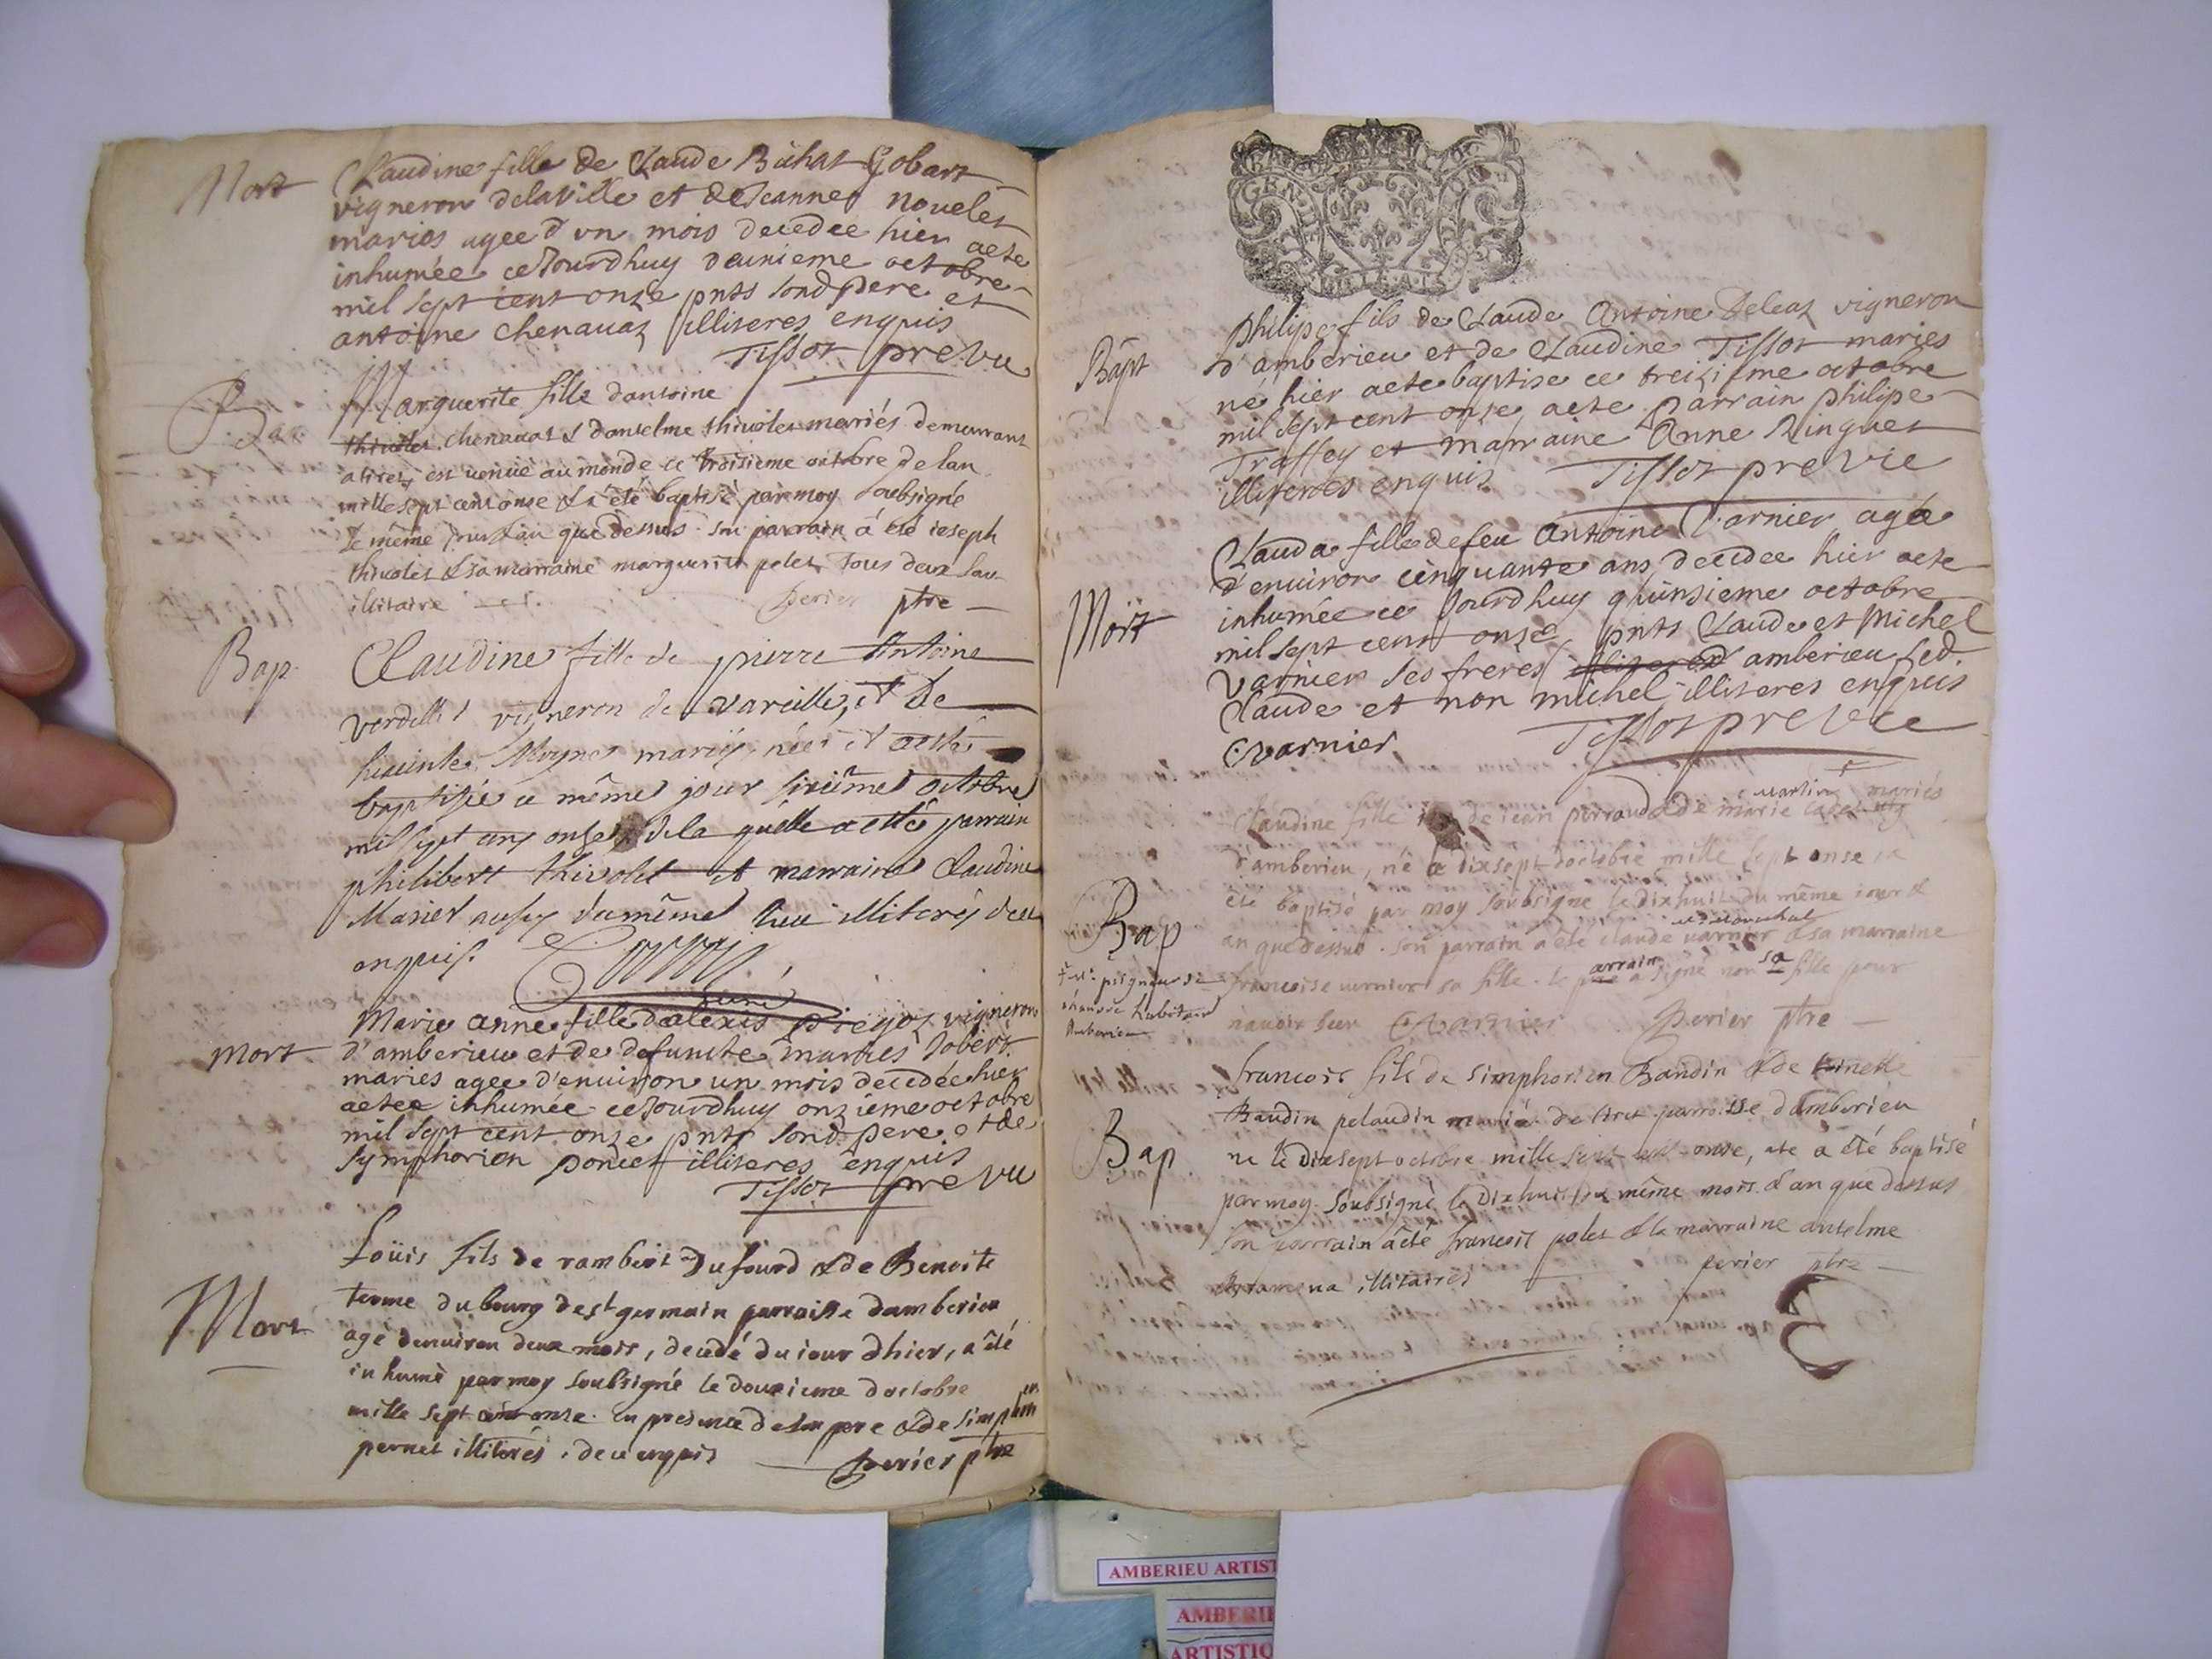 Mort
Claudine fille de Claude Bachat Gobart
vigneron delaville et de Jeanne novelet
maries agee d'un mois decedee hier aete
inhumée ceJourdhuy deuxieme octobre
mil sept cent onze pnts sond pere et
antoine chenavaz illiteres enquis
Tissot pre vic
Bap
Marguerite fille dantoine
thivolet chenavat & danselme thivolet mariés demeurant
a tiret, est venue au monde ce troisieme octobre de lan
mille sept cent onze & a été baptisé par moy soubsigné
le même jour & an que dessus. son parrain a été ioseph
thivolet & sa marraine marguerite polet tous deux
illitaire
perier ptre
Bap
Claudine fille de pierre Antoine
verdellet vigneron de vareille, et de
mariés, née et aesté
baptisée ce même jour sixième octobre
mil sept cens onze, de la quelle a esté parrain
philibert thivolet et marraine Claudine
aussy du même lieu illiterés deu
enquis.
Mort
Marie anne fille dalexis piegoz vigneron
d'amberieu et de defuncte Jobert
maries agee d'environ un mois decedée hier
aetee inhumée ceJourdhuy onzieme octobre
mil sept cent onze pnts sond. pere et de
symphorien poncet illiteres enquis
Tissot pre vic
Mort
Loüis fils de rambert Dufourd & de Benoite
terme du bourg de st germain parroisse damberieu
agé denviron deux mois, decedé du iour dhier, a été
inhumé par moy soubsigné le douzieme doctobre
mille sept cent onze. en presence de son pere & de simphorien
pernet illiterés. de ce enquis
perier ptre
Bapt
philipe fils de Claude Antoine Deleaz vigneron
d'amberieu et de Claudine Tissot maries
né hier aete baptise ce treizieme octobre
mil sept cent onze, aete parrain philipe
Traffey et marraine Anne Ringuet
illiteres enquis Tissot pre vic
Mort
Clauda fille de feu Antoine Varnier agée
d'environ cinquante ans decedee hier aete
inhumée ce Jourdhuy quinsieme octobre
mil sept cent onze, pnts Claude et Michel
Varnier ses freres illiteres amberieu led.
Claude et non michel illiteres enquis
C varnier Tissot pre vic
martin mariés
Bap
Claudine fille de iean perraud & de marie
d'amberieu, né le dixsept doctobre mille sept onse
été baptisé par moy soubsigné le dixhuit du même iour &
mre marechal
an que dessus. son parrain a été claude varnier & sa marraine
arrain sa
francoise varnier sa fille. le a signé non fille pour
navoir sceu C varnier perier ptre
psigneur de
chanvre habitant
Amberieu
Bap
francois fils de simphorien Baudin & de
Baudin pelaudin mariés de tiret parroisse damberieu
né le dixsept octobre mille sept cent onse, a été baptisé
par moy soubsigné le dixhuit du même mois & an que dessus
son parrain a été francois polet & la marraine antelme
illitairés perier ptre
AMBERIEU ARTIST
AMBERIE
ARTISTIQ